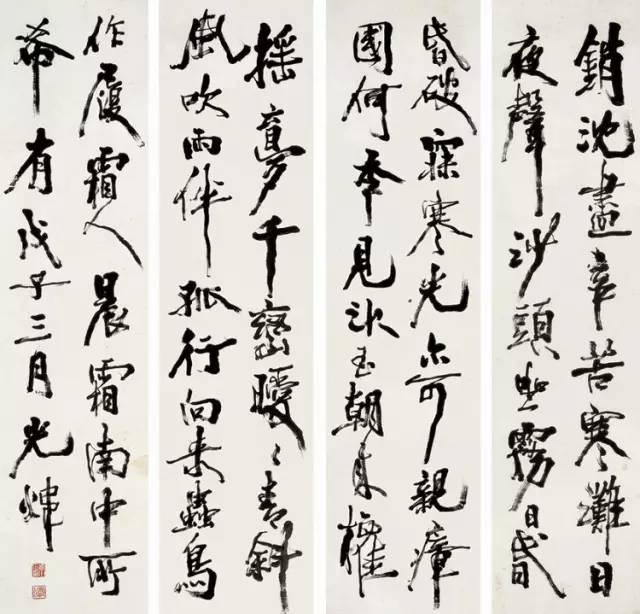 銷沈盡辛苦寒灘日
夜聲沙頭照霧日昏
昏破寐寒光亦可親瘴
國何年見冰玉朝來櫂
搖夢千巒曖〻青斜
風吹雨伴孤行向來蠻鳥
作履霜人晨霜南中所
希有戊子三月光煒